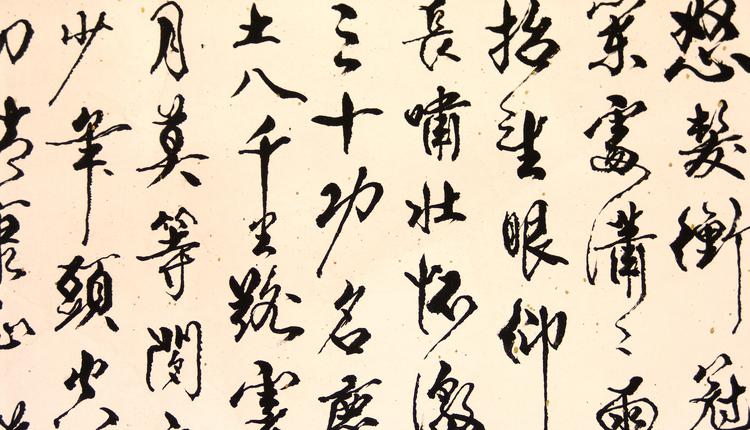 怒髮衝冠
處瀟〻雨
抬望眼仰
長嘯壯怀激
三十功名塵
土八千里路雲
月莫等閒
少年頭空